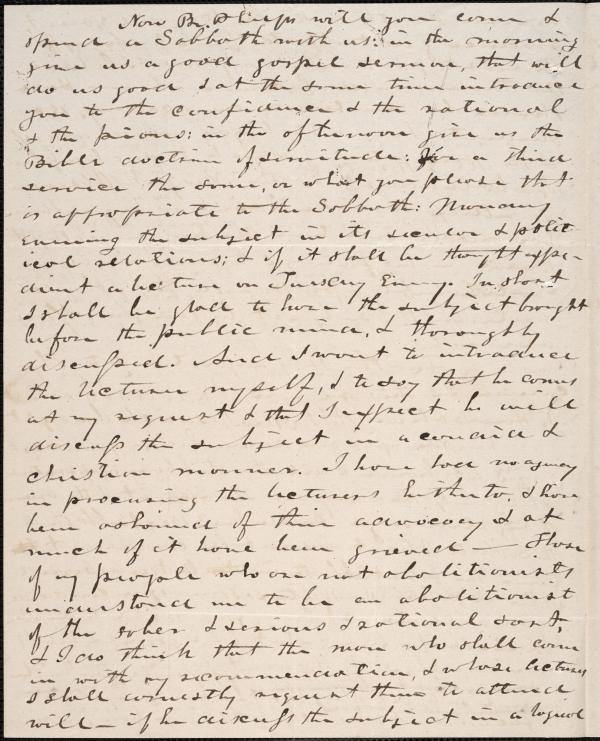 Now Br. Phelps will you come &
spend a Sabbath with us: in the morning
give us a good gospel sermon, that will
do us good & at the same time introduce
you to the confidence & the rational
& the pious: in the afternoon give us the
Bible doctrine of servitude: for a third
service the same, or what you please that
is appropriate to the Sabbath: Monday
evening the subject in its secular & polit-
ical relations; & if it shall be thought expe-
dient a lecture on Tuesday Eveng. In short
I shall be glad to have the subject brought
before the public mind, & thoroughly
discussed. And I want to introduce
the lecturer myself, & to say that he comes
at my request & that I expect he will
discuss the subject in a candid &
christian manner. I have had no agency
in procuring the lecturers hitherto, & have
been ashamed of their advocacy & at
much of it have been grieved — Those
of my people who are not abolitionists
understand me to be an abolitionist
of the sober & serious & rational sort,
& I do think that the man who shall come
in with my recommendation, & whose lectures
I shall earnestly request them to attend
will — if he discuss the subject in a logical